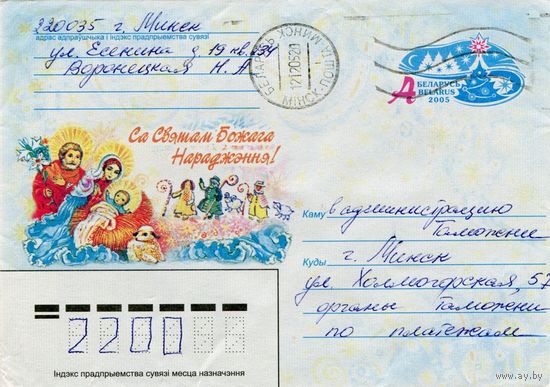 220035 г. Минск
адрас адпраўшчыка і індэкс прадпрыемства сувязі
ул. Есенина д. 19 кв. 434
Воронецкая Н. А
БЕЛАРУСЬ МІНСК
121205 20
МІНСК
А БЕЛАРУСЬ
BELARUS
2005
Са Святам Божага
Нараджэння!
Каму в администрацию
Таможени
Куды г. Минск
ул. Холмогорская, 57
органы Таможени
по платежам
2200
Індэкс прадпрыемства сувязі месца назначэння
www.ay.by